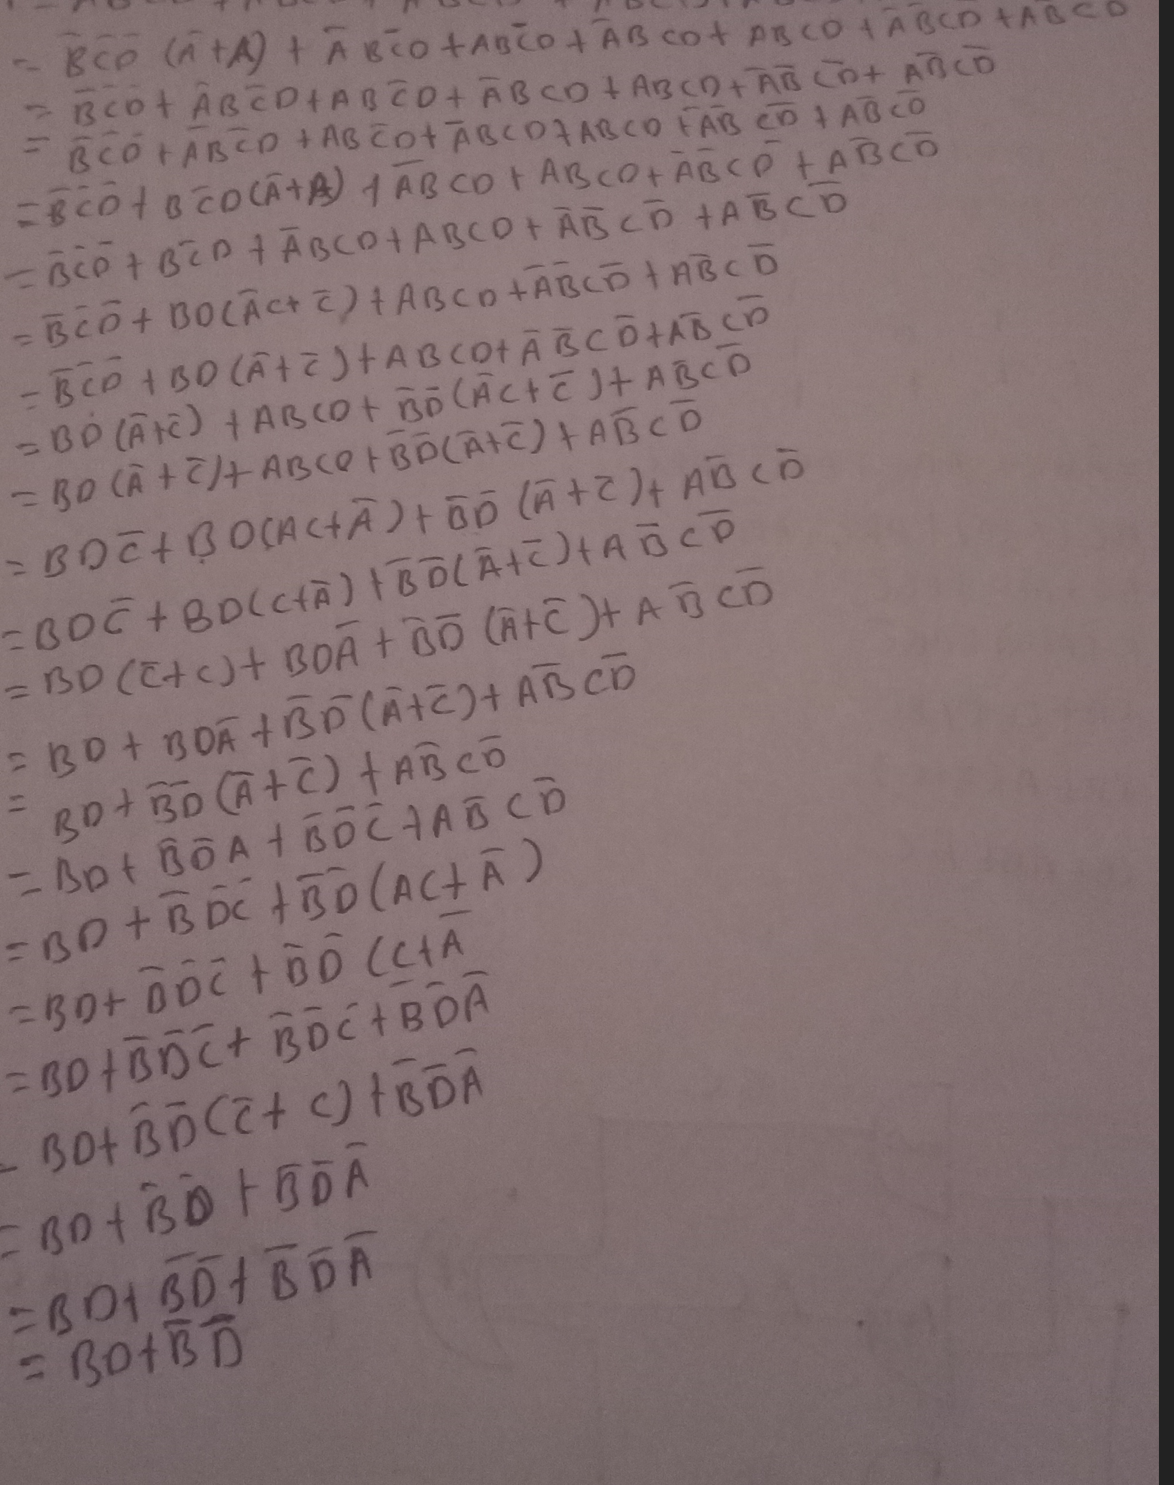 = B̅C̅D̅ (A̅+A) + A̅BC̅D+ABC̅D+A̅BCD+ ABCD+A̅B̅CD̅+AB̅CD̅
= B̅C̅D̅+ A̅BC̅D+ABC̅D+A̅BCD+ABCD+A̅B̅CD̅+ AB̅CD̅
= B̅C̅D̅+A̅BC̅D +ABC̅D+A̅BCD+ABCD+A̅B̅CD̅+AB̅CD̅
=B̅C̅D̅+BC̅D(A̅+A)+A̅BCD+ABCD+A̅B̅CD̅+AB̅CD̅
=B̅C̅D̅+BC̅D+A̅BCD+ABCD+A̅B̅CD̅+AB̅CD̅
=B̅C̅D̅+BD(A̅C+C̅)+ABCD+A̅B̅CD̅+AB̅CD̅
=B̅C̅D̅+BD(A̅+C̅)+ABCD+A̅B̅CD̅+AB̅CD̅
=BD(A̅+C̅)+ABCD+B̅D̅(A̅C+C̅)+AB̅CD̅
=BD(A̅+C̅)+ABCD+B̅D̅(A̅+C̅)+AB̅CD̅
=BDC̅+BD(AC+A̅)+B̅D̅(A̅+C̅)+AB̅CD̅
=BDC̅+BD(C+A̅)+B̅D̅(A̅+C̅)+AB̅CD̅
=BD(C̅+C)+BDA̅+B̅D̅(A̅+C̅)+AB̅CD̅
=BD+BDA̅+B̅D̅(A̅+C̅)+AB̅CD̅
= BD+B̅D̅(A̅+C̅)+AB̅CD̅
=BD+B̅D̅A+B̅D̅C̅+AB̅CD̅
=BD+B̅D̅C̅+B̅D̅(AC+A̅)
=BD+B̅D̅C̅+B̅D̅(C+A̅
=BD+B̅D̅C̅+B̅D̅C+B̅D̅A̅
= BD+B̅D̅(C̅+C)+B̅D̅A̅
=BD+B̅D̅+B̅D̅A̅
=BD+B̅D̅+B̅D̅A̅
=BD+B̅D̅